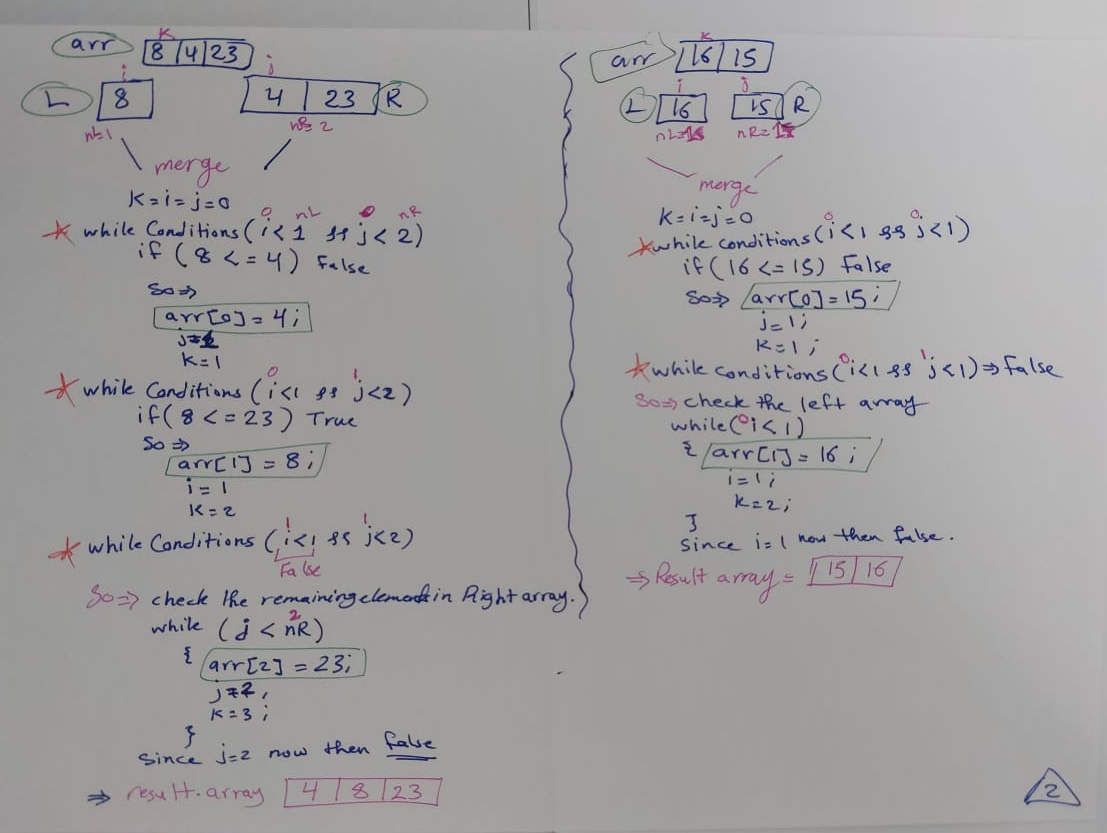 arr K 8 4 23
i j
L 8 4 23 R
nL=1 nR=2
merge
K=i=j=0
0 nL 0 nR
* while Conditions (i<1 && j<2)
if (8 <= 4) False
So ⇒
arr[0] = 4;
j=1
K=1
0 1
* while Conditions (i<1 && j<2)
if (8 <= 23) True
So ⇒
arr[1] = 8;
i = 1
K = 2
1 1
* while Conditions (i<1 && j<2)
False
So ⇒ check the remaining element in Right array.
2
while (j < nR)
{ arr[2] = 23;
j=2;
K=3;
}
Since j=2 now then false
⇒ result.array 4 8 23
K
arr 16 15
i j
L 16 15 R
nL=1 nR=1
merge
K=i=j=0
0 0
* while conditions (i<1 && j<1)
if (16 <= 15) False
So ⇒ arr[0] = 15;
j=1;
K=1;
0 1
* while conditions (i<1 && j<1) ⇒ False
So ⇒ check the left array
while (0 i<1)
{ arr[1] = 16;
i=1;
K=2;
}
Since i=1 now then false.
⇒ Result array = 15 16
2